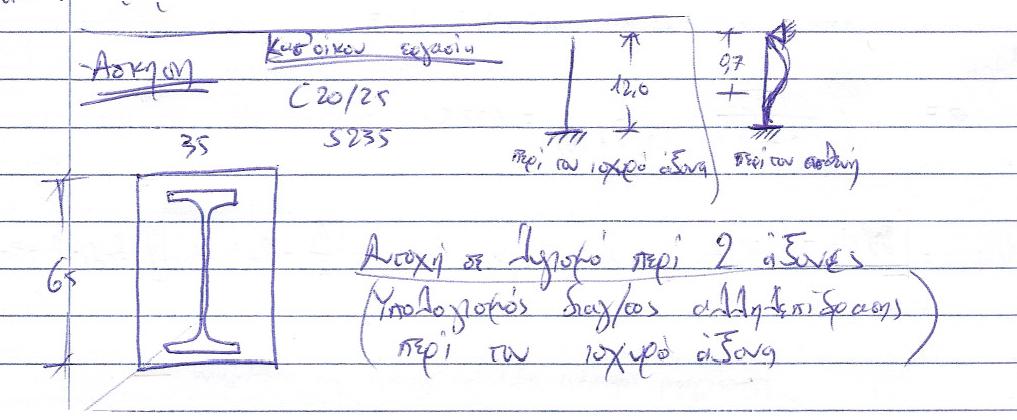 Άσκηση
Κατ' οίκον εργασία
C20/25
S235
12,0
0,7
περί τον ισχυρό άξονα
περί τον ασθενή
35
65
Αντοχή σε λυγισμό περί 2 άξονες
(Υπολογισμός διαγ/τος αλληλεπίδρασης
περί τον ισχυρό άξονα)